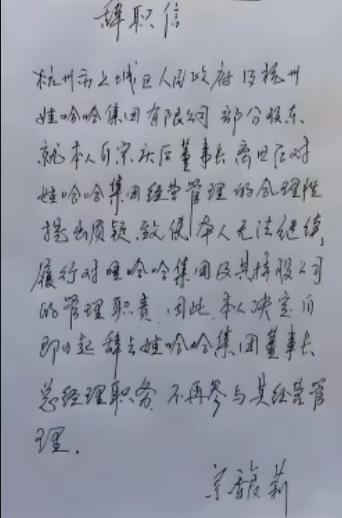 辞职信
杭州市上城区人民政府及杭州
娃哈哈集团有限公司部分股东,
就本人自宗庆后董事长离世后对
娃哈哈集团经营管理的合理性
提出质疑,致使本人无法继续
履行对娃哈哈集团及其持股公司
的管理职责.因此,本人决定自
即日起辞去娃哈哈集团董事长
总经理职务.不再参与其经营管
理.
宗馥莉